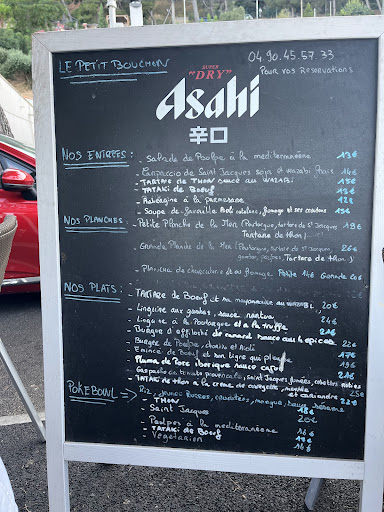 LE PETIT BOUCHON
04.90.45.57.33
Pour vos Reservations
SUPER
"DRY"
Asahi
辛口
NOS ENTREES : - Salade de Poulpe à la mediterranéene 13€
- Carpaccio de Saint Jacques soja et wazabi frais 16€
- TARTARE de THON sauce au WAZABI 15€
- TATAKI de Boeuf 13€
- Aubergine à la parmesane 12€
- Soupe de favouille Aioli croutons, fromage et ses croutons 19€
NOS PLANCHES : - Petite Planche de la Mer (Poutargue, tartare de St Jacques 18€
Tartare de thon)
- Grande Planche de la Mer (Poutargue, tartare de St Jacques, 26€
gambas, Tartare de thon)
- Planche de charcuterie et ou fromage Petite 14€ Grande 20€
NOS PLATS : - TARTARE de Boeuf et sa mayonnaise au WAZABI 20€
- Linguine aux gambas, sauce nantua 24€
- à la Poutargue et à la truffe 24€
- Burger d'effiloché de canard sauce aux 4 épices
- Burger de Poulpe, chorizo et Aioli 22€
- Emincé de Boeuf et son tigre qui pleure 17€
- Pluma de Porc iberique sauce café 19€
- Gaspacho tomate provençale, Saint Jacques fumées, crevettes 21€
- TATAKI de thon à la creme de cacahuète, menthe et coriandre 25€
22€
POKEBOWL => Riz, jeunes pousses, crudités, mangue, sauce sesame
- THON 18€
- Saint Jacques 20€
- Poulpes à la mediterranéene
- TATAKI de Boeuf 16€
- Vegetarien 16€